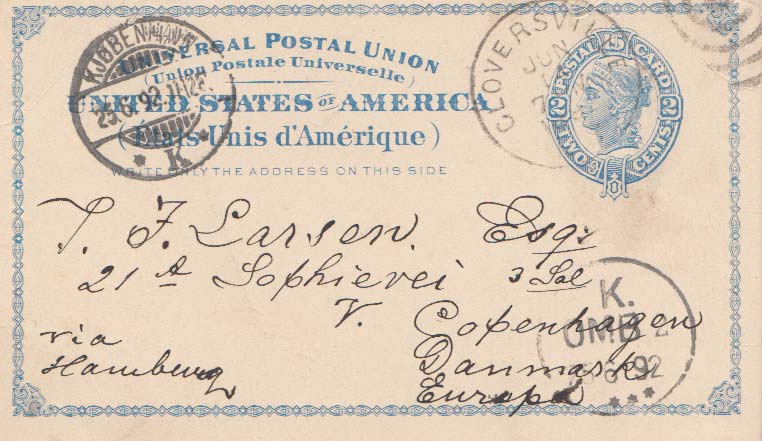 UNIVERSAL POSTAL UNION
(Union Postale Universelle)
UNITED STATES OF AMERICA
(États-Unis d'Amérique)
WRITE ONLY THE ADDRESS ON THIS SIDE
POSTAL CARD
U S
2 2
TWO CENTS
KJØBENHAVN
25.6.92.
K
CLOVERSVIL
JUN
T. F. Larsen. Esq:
21 A Sophievei 3 Sal
V. Copenhagen
Danmark
Europa
via
Hamburg
K.
OMB 2
25 6 92